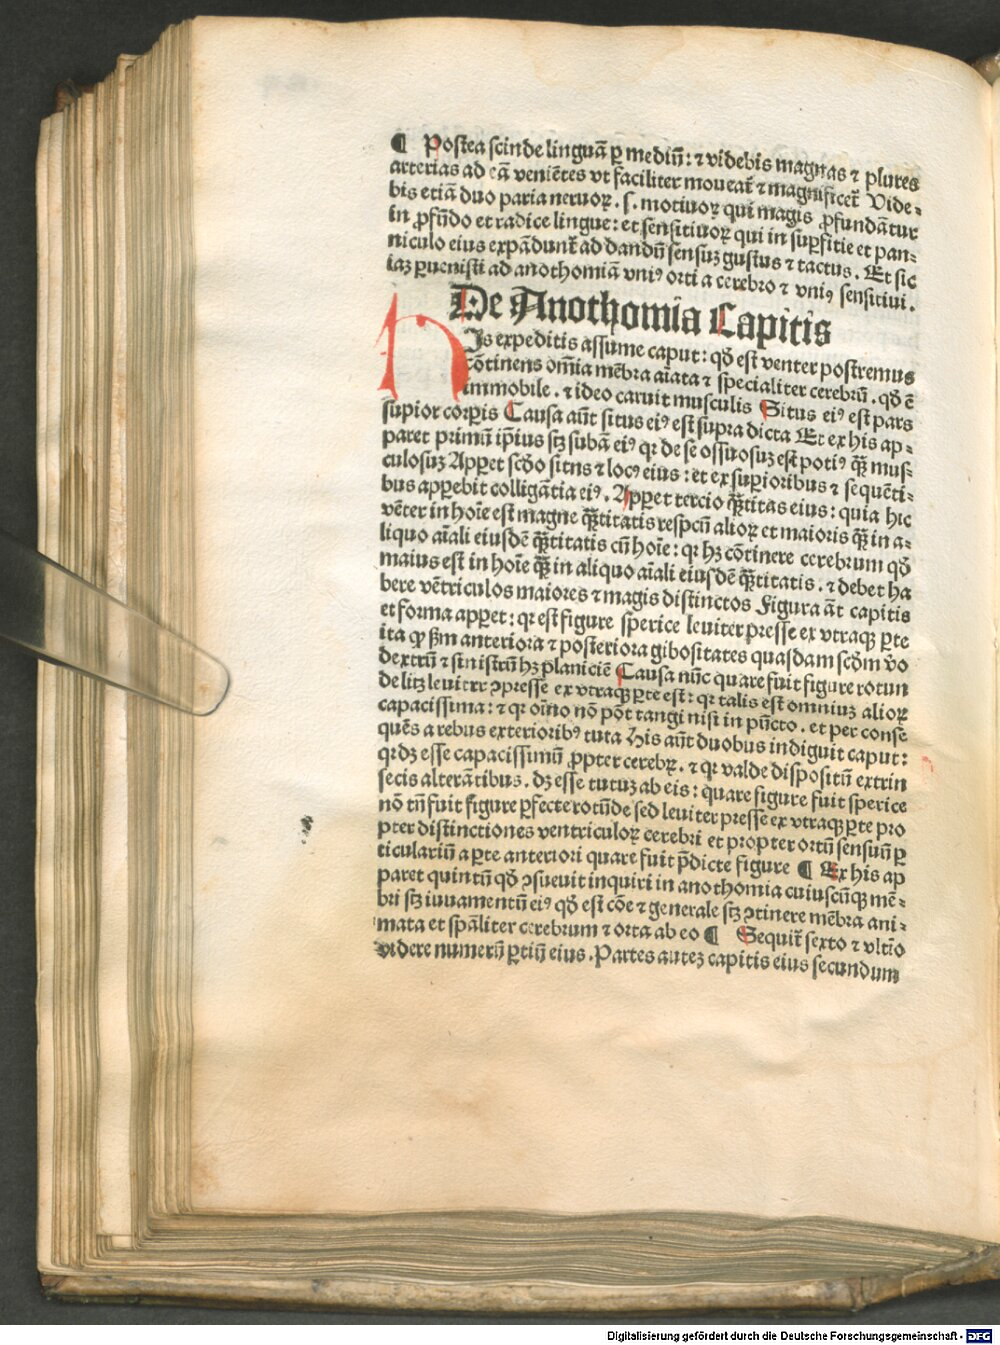 ¶ Postea scinde linguā ꝑ mediū: ⁊ videbis magnas ⁊ plures
arterias ad eā veniētes vt faciliter moueat̄ ⁊ magnificet̄ Vide-
bis etiā duo paria neruoꝝ .s. motiuoꝝ qui magis ꝓfundātur
in ꝓfūdo et radice lingue: et sensitiuoꝝ qui in suꝑfitie et pan-
niculo eius expādunt̄ ad dandū sensuꝫ gustus ⁊ tactus. Et sic
iaꝫ ꝑuenisti ad anothomiā vniꝰ orti a cerebro ⁊ vniꝰ sensitiui.
De Anothomia Capitis
His expeditis assume caput: qđ est venter postremus
cōtinens om̄ia mēbra aīata ⁊ specialiter cerebrū. qđ ē
immobile. ⁊ ideo caruit musculis Situs eiꝰ est pars
supior corꝑis Causa aūt situs eiꝰ est supra dicta Et ex his ap-
paret primū ip̄ius sꝫ subā eiꝰ qꝛ de se ossuosuꝫ est potiꝰ qꝫ̄ mus-
culosuꝫ Apꝑet scđo situs ⁊ locꝰ eius: et ex suꝑioribus ⁊ sequēti-
bus apꝑebit colligātia eiꝰ. Apꝑet tercio qꝫ̄titas eius: quia hic
vēter in hoīe est magne qꝫ̄titatis respcū alioꝝ et maioris qꝫ̄ in a-
liquo aīali eiusdē qꝫ̄titatis cū hoīe: qꝛ hꝫ cōtinere cerebrum qđ
maius est in hoīe qꝫ̄ in aliquo aīali eiusdē qꝫ̄titatis. ⁊ debet ha
bere vētriculos maiores ⁊ magis distinctos Figura āt capitis
et forma apꝑet: qꝛ est figure sperice leuiter presse ex vtraqꝫ ꝑte
ita ꝙ ẜm anteriora ⁊ posteriora gibositates quasdam scđm v̄o
dextrū ⁊ sinistrū hꝫ planiciē Causa nūc quare fuit figure rotun
de litꝫ leuiter ꝯpresse ex vtraqꝫ ꝑte est: qꝛ talis est omniuꝫ alioꝝ
capacissima: ⁊ qꝛ oīno nō pōt tangi nisi in pūcto. et per conse
quēs a rebus exterioribꝰ tuta His aūt duobus indiguit caput:
qꝛ dꝫ esse capacissimū ꝓpter cerebꝝ. ⁊ qꝛ valde dispositū extrin
secis alterātibus. dꝫ esse tutuꝫ ab eis: quare figure fuit sperice
nō tn̄ fuit figure ꝑfecte rotūde sed leuiter presse ex vtraqꝫ ꝑte pro
pter distinctiones ventriculoꝝ cerebri et propter ortū sensuū ꝑ
ticulariū a ꝑte anteriori quare fuit p̄dicte figure ¶ Ex his ap
paret quintū qđ ꝯsueuit inquiri in anothomia cuiuscūqꝫ mē-
bri sꝫ iuuamentū eiꝰ qđ est cōe ⁊ generale sꝫ ꝯtinere mēbra ani-
mata et spāliter cerebrum ⁊ orta ab eo ¶ Sequit̄ sexto ⁊ vltīo
videre numerū ꝑtiū eius. Partes auteꝫ capitis eius secundum
Digitalisierung gefördert durch die Deutsche Forschungsgemeinschaft - DFG